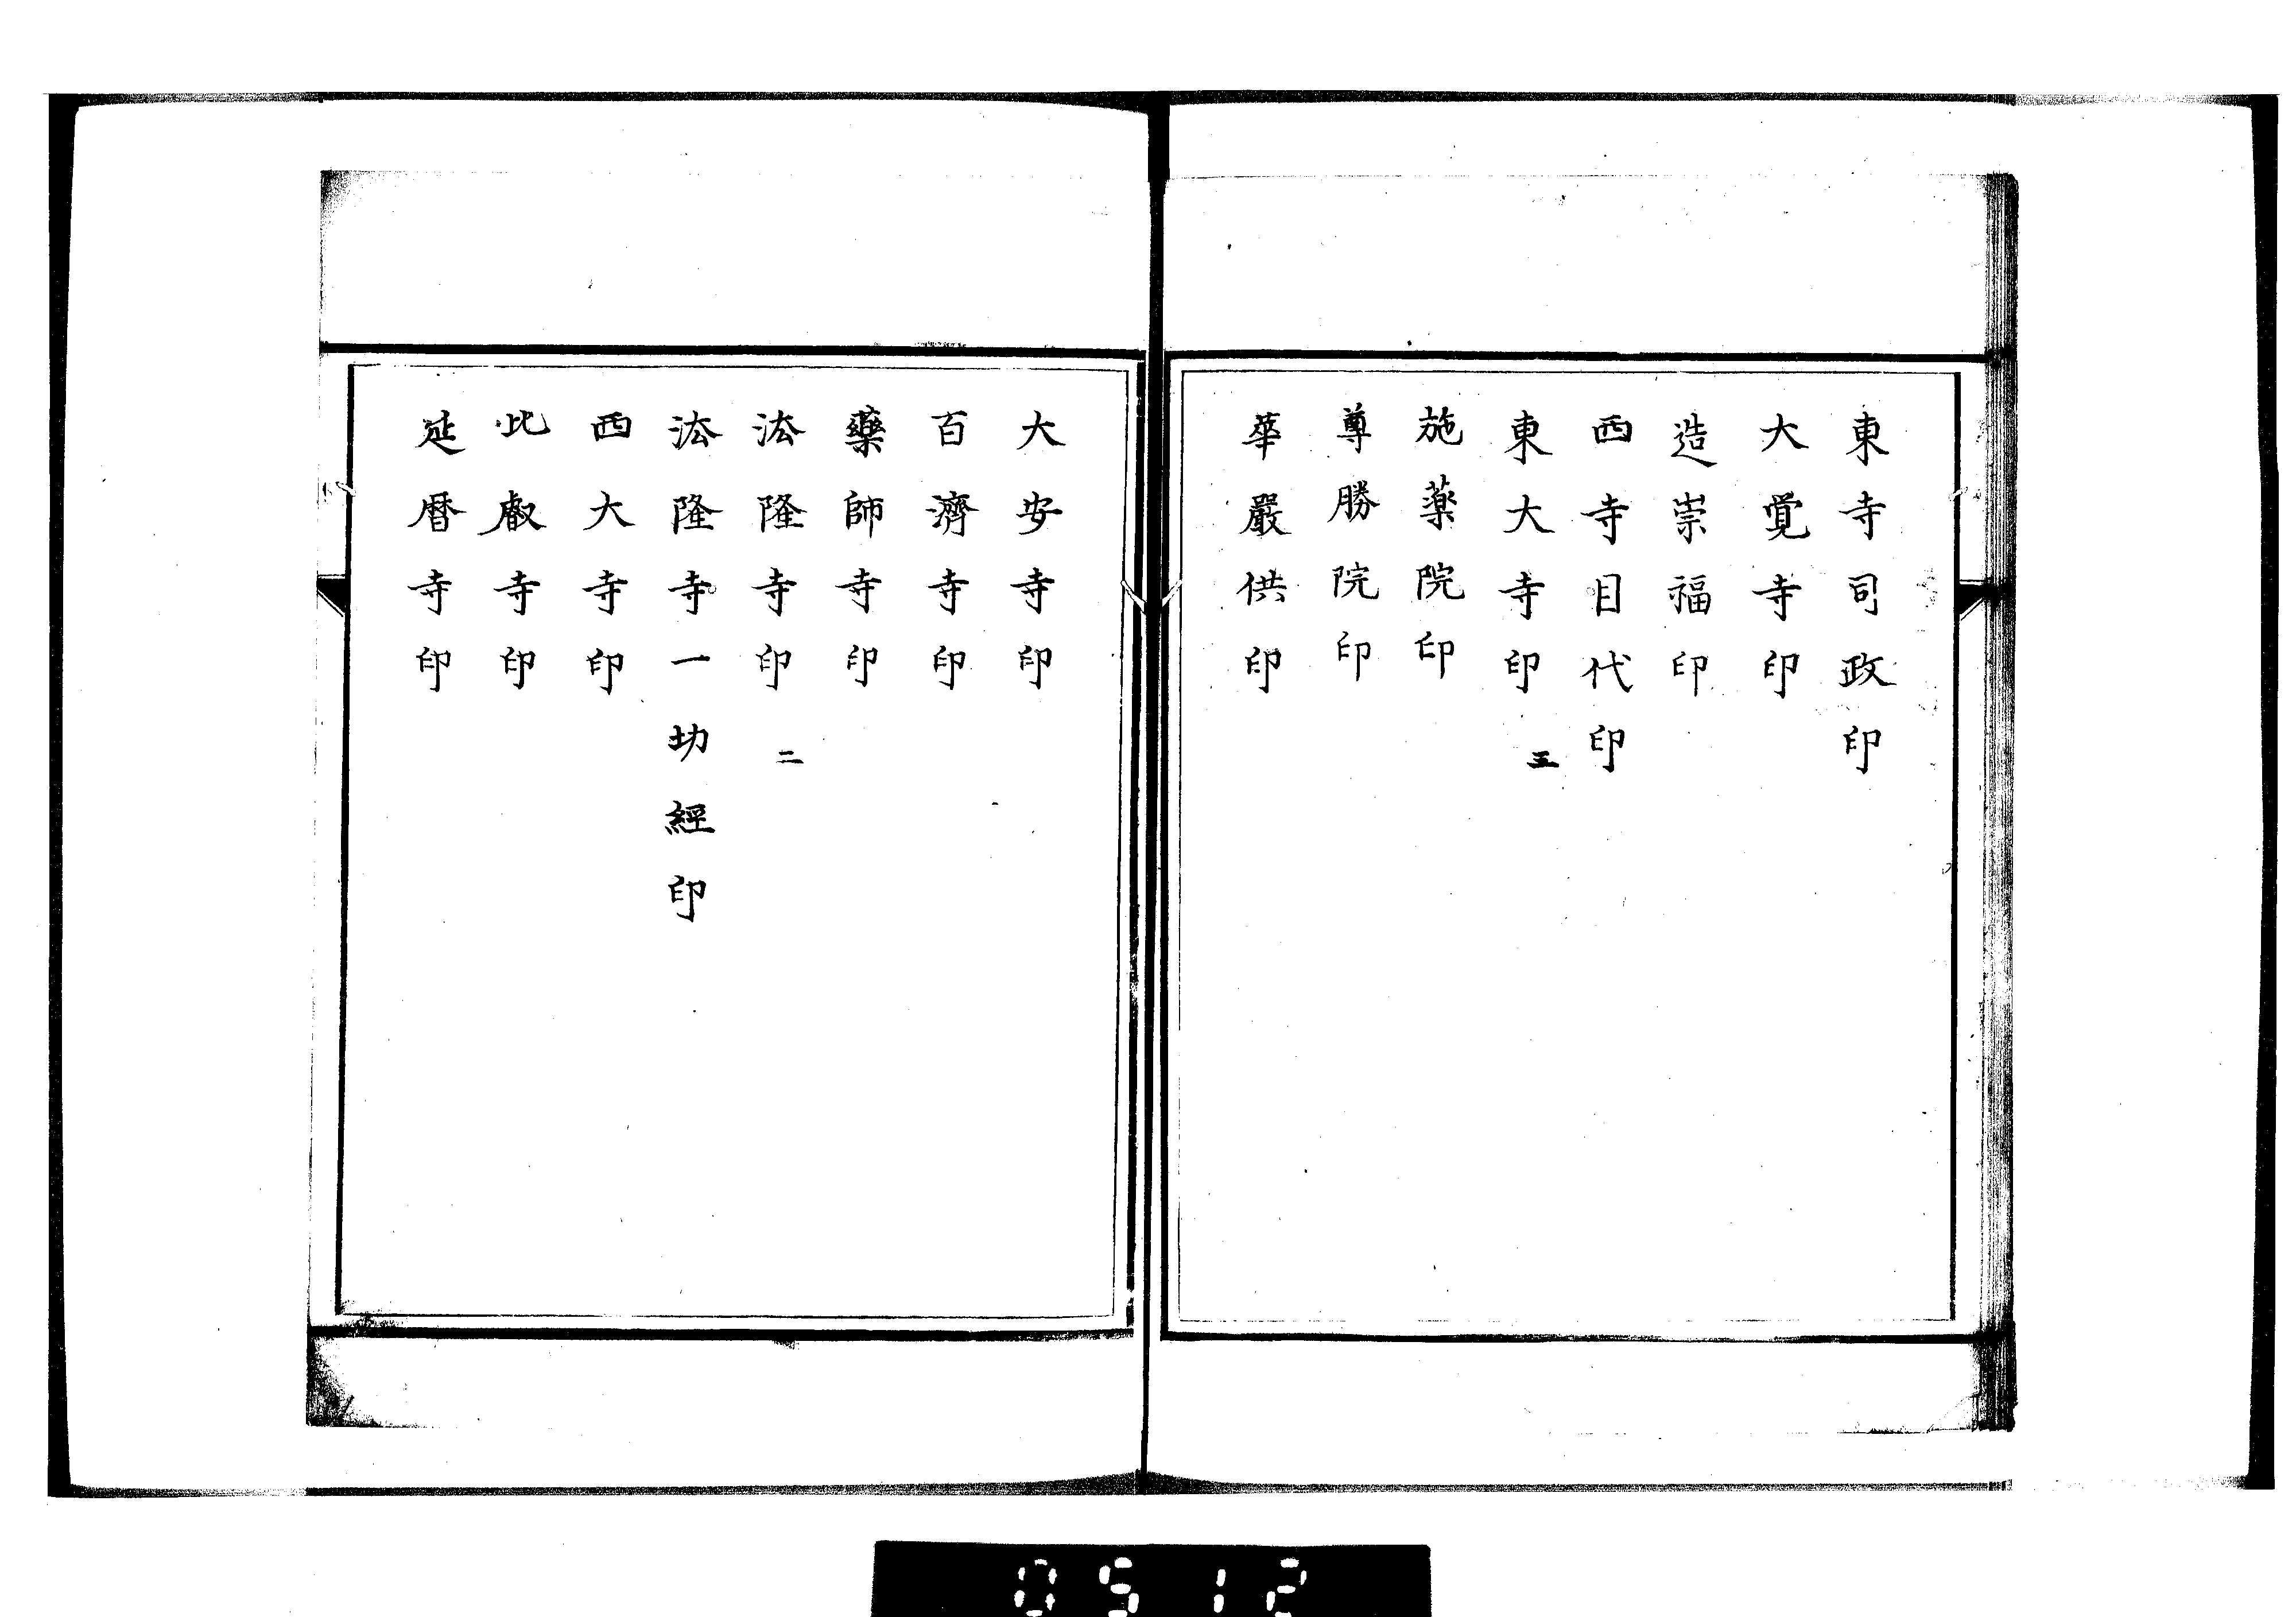 東寺司政印
大覚寺印
造崇福印
西寺目代印
東大寺印 五
施薬院印
尊勝院印
華嚴供印
大安寺印
百濟寺印
藥師寺印
法隆寺印 二
法隆寺一切經印
西大寺印
比叡寺印
延暦寺印
0512